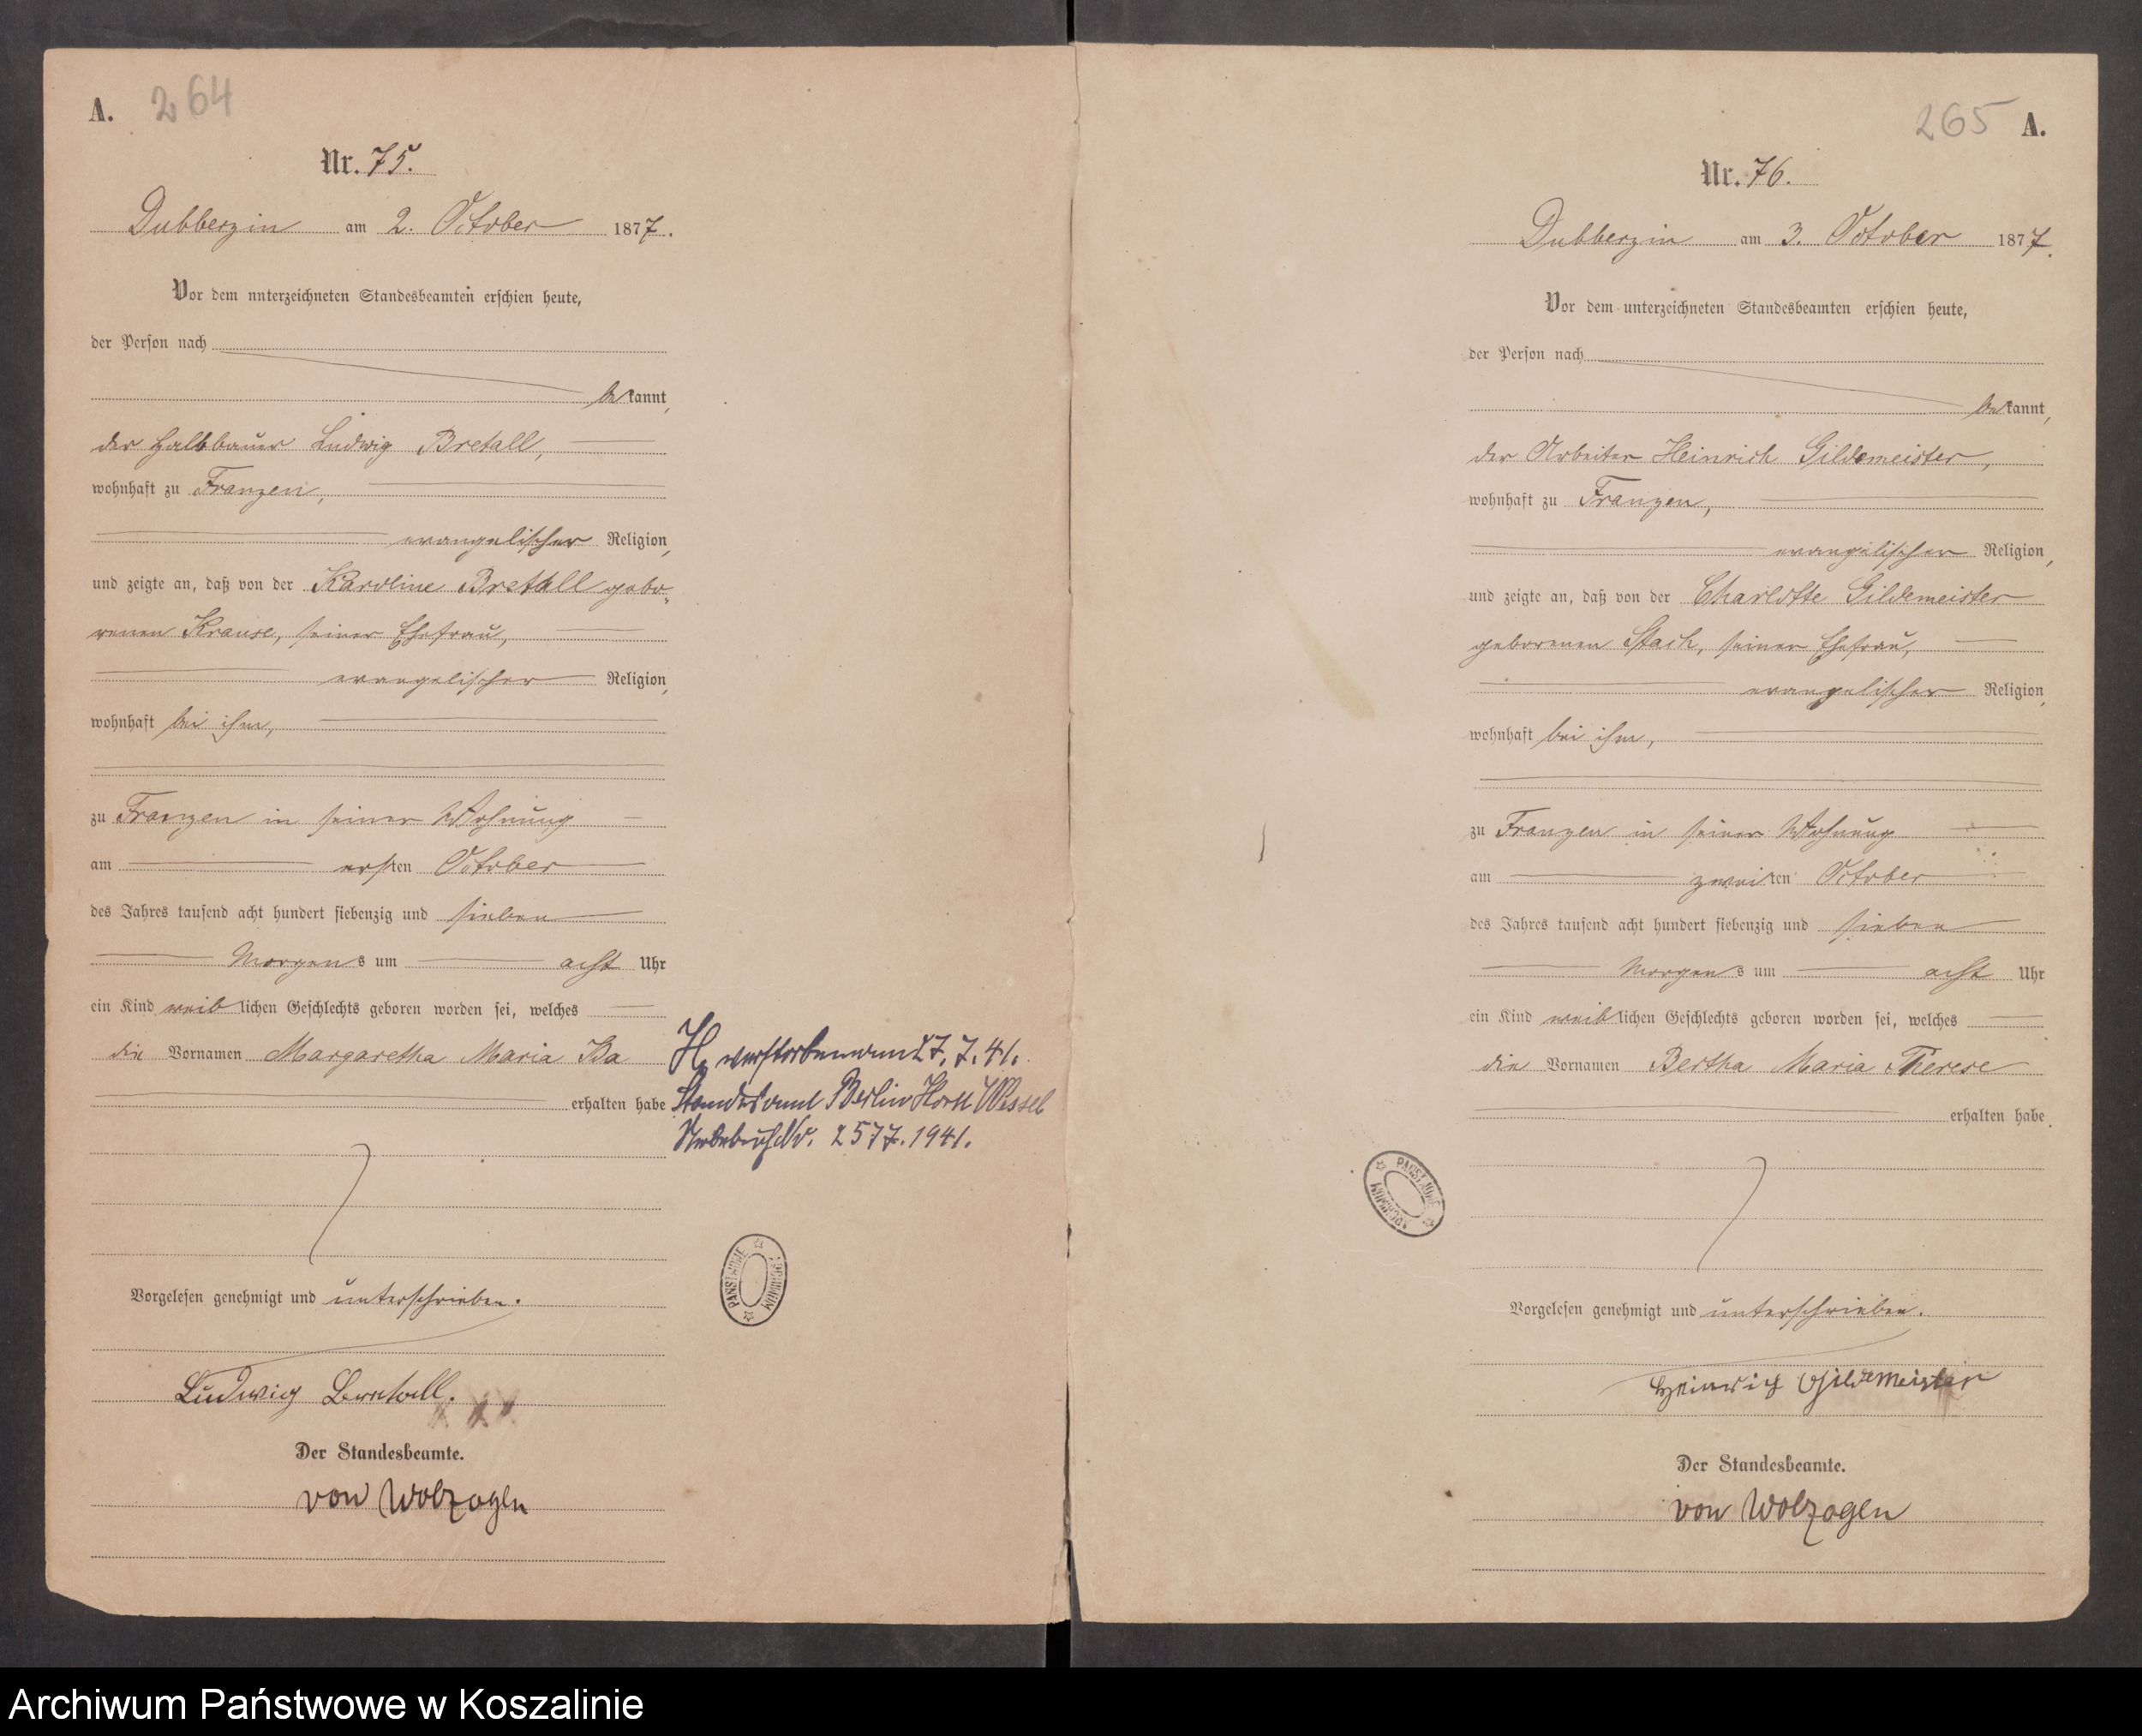 A. 264
Nr. 75.
Dubberzin am 2. October 1877.
Vor dem unterzeichneten Standesbeamten erschien heute,
der Person nach
bekannt,
der Halbbauer Ludwig Bretall,
wohnhaft zu Franzen,
evangelischer Religion,
und zeigte an, daß von der Karoline Bretall gebo-
renen Krause, seiner Ehefrau,
evangelischer Religion,
wohnhaft bei ihm,
zu Franzen in seiner Wohnung
am ersten October
des Jahres tausend acht hundert siebenzig und sieben
Morgens um acht Uhr
ein Kind weiblichen Geschlechts geboren worden sei, welches
die Vornamen Margaretha Maria Ida
erhalten habe
H. verstorben am 27.7.41.
Standesamt Berlin Horst Wessel
Sterbebuch Nr. 2577.1941.
PAŃSTWOWE ARCHIWUM
Vorgelesen genehmigt und unterschrieben.
Ludwig Bretall.
Der Standesbeamte.
von Wolzogen
265 A.
Nr. 76.
Dubberzin am 3. October 1877.
Vor dem unterzeichneten Standesbeamten erschien heute,
der Person nach
bekannt,
der Arbeiter Heinrich Gildemeister,
wohnhaft zu Franzen,
evangelischer Religion,
und zeigte an, daß von der Charlotte Gildemeister
geborenen Stach, seiner Ehefrau,
evangelischer Religion,
wohnhaft bei ihm,
zu Franzen in seiner Wohnung
am zweiten October
des Jahres tausend acht hundert siebenzig und sieben
Morgens um acht Uhr
ein Kind weiblichen Geschlechts geboren worden sei, welches
die Vornamen Bertha Maria Therese
erhalten habe.
PAŃSTWOWE ARCHIWUM
Vorgelesen genehmigt und unterschrieben.
Heinrich Gildemeister
Der Standesbeamte.
von Wolzogen
Archiwum Państwowe w Koszalinie